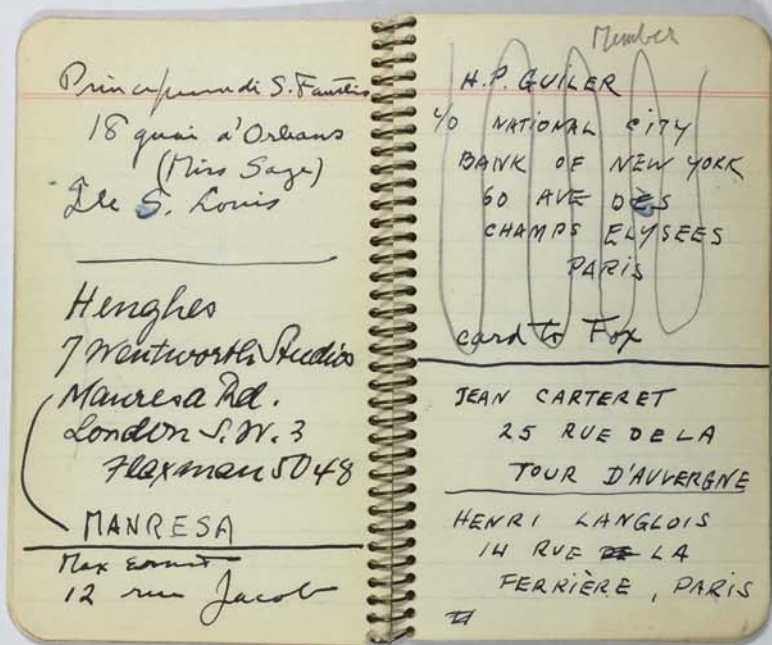 di S. Faustino
18 quai d'Orleans
(Miss Sage)
Ile S. Louis
Henghes
7 Wentworth Studios
Manresa Rd.
London S.W. 3
Flaxman 5048
MANRESA
Max Ernst
12 rue Jacob
Member
H.P. GUILER
c/o NATIONAL CITY
BANK OF NEW YORK
60 AVE DES
CHAMPS ELYSEES
PARIS
card to Fox
JEAN CARTERET
25 RUE DE LA
TOUR D'AUVERGNE
HENRI LANGLOIS
14 RUE DE LA
FERRIÈRE, PARIS